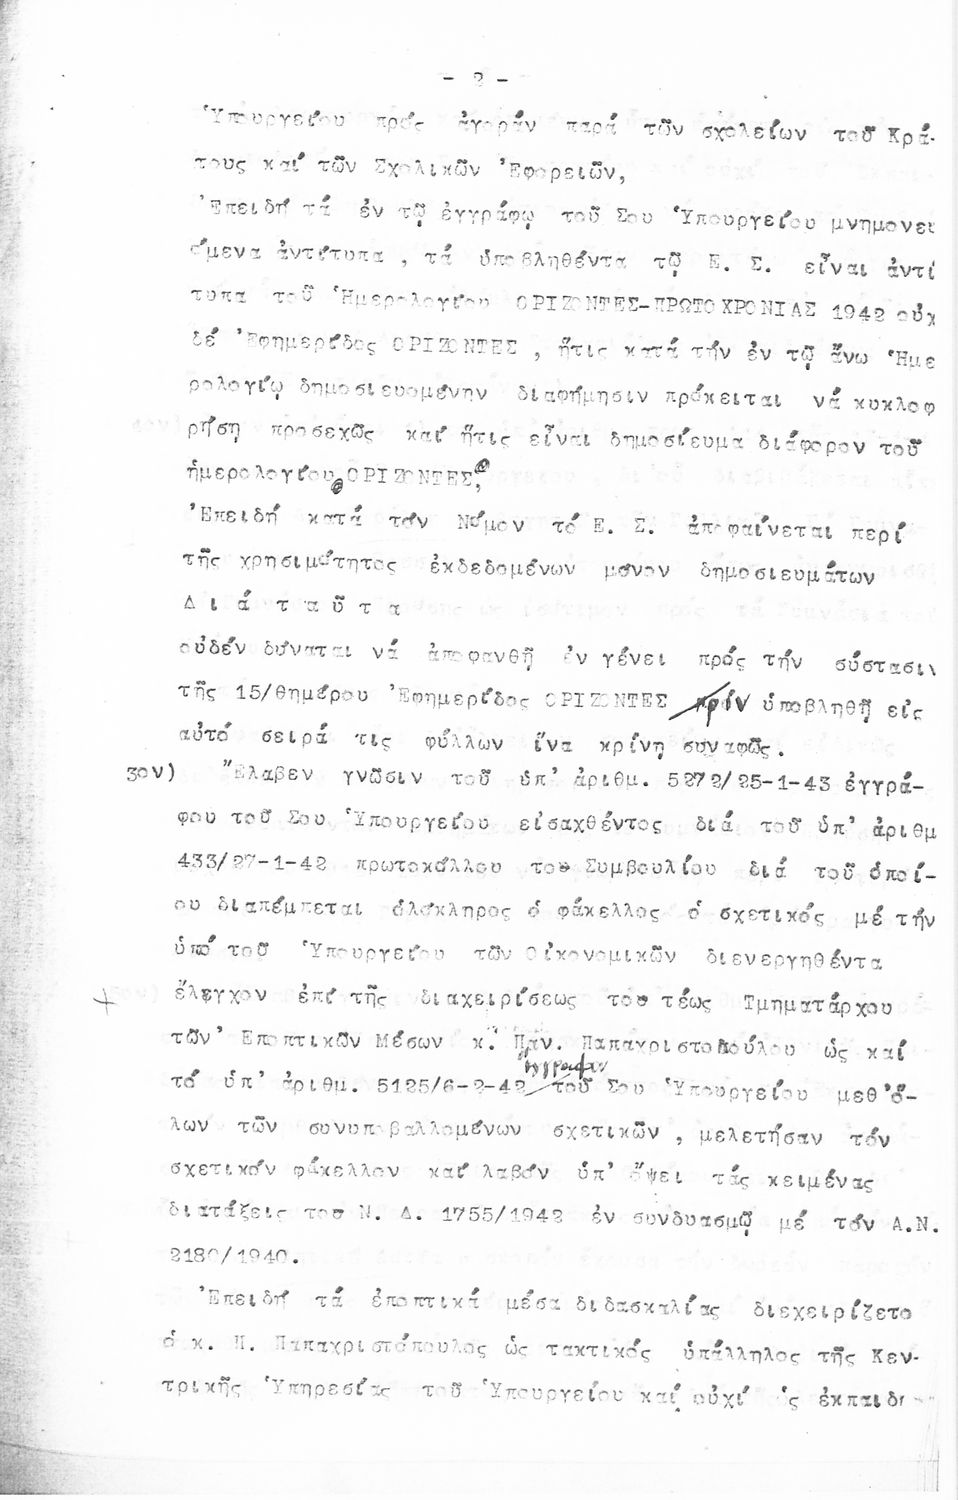 - 2 -
Ὑπουργείου πρός ἀγοράν παρά τῶν σχολείων τοῦ Κρά-
τους καί τῶν Σχολικῶν Ἐφορειῶν,
Ἐπειδή τά ἐν τῷ ἐγγράφῳ τοῦ Σου Ὑπουργείου μνημονευ
όμενα ἀντίτυπα , τά ὑποβληθέντα τῷ Ε. Σ. εἶναι ἀντί
τυπα τοῦ Ἡμερολογίου ΟΡΙΖΟΝΤΕΣ-ΠΡΩΤΟΧΡΟΝΙΑΣ 1942 οὐχ
δέ Ἐφημερίδος ΟΡΙΖΟΝΤΕΣ , ἥτις κατά τήν ἐν τῷ ἄνω Ἡμε
ρολογίῳ δημοσιευομένην διαφήμησιν πρόκειται νά κυκλοφ
ρήσῃ προσεχῶς καί ἥτις εἶναι δημοσίευμα διάφορον τοῦ
ἡμερολογίου ΟΡΙΖΟΝΤΕΣ,
Ἐπειδή κατά τόν Νόμον τό Ε. Σ. ἀποφαίνεται περί
τῆς χρησιμότητος ἐκδεδομένων μόνον δημοσιευμάτων
Δ ι ά τ α ῦ τ α
οὐδέν δύναται νά ἀποφανθῇ ἐν γένει πρός τήν σύστασιν
τῆς 15/θημέρου Ἐφημερίδος ΟΡΙΖΟΝΤΕΣ πρίν ὑποβληθῇ εἰς
αὐτό σειρά τις φύλλων ἵνα κρίνῃ συναφῶς.
3ον) Ἔλαβεν γνῶσιν τοῦ ὑπ' ἀριθμ. 5272/25-1-43 ἐγγρά-
φου τοῦ Σου Ὑπουργείου εἰσαχθέντος διά τοῦ ὑπ' ἀριθμ
433/27-1-42 πρωτοκόλλου του Συμβουλίου διά τοῦ ὁποί-
ου διαπέμπεται ὁλόκληρος ὁ φάκελλος ὁ σχετικός μέ τήν
ὑπό τοῦ Ὑπουργείου τῶν Οἰκονομικῶν διενεργηθέντα
ἔλεγχον ἐπί τῆς διαχειρίσεως του τέως Τμηματάρχου
τῶν Ἐποπτικῶν Μέσων κ. Παν. Παπαχριστοπούλου ὡς καί
ἔγγραφον
τό ὑπ' ἀριθμ. 5125/6-2-42 τοῦ Σου Ὑπουργείου μεθ'ὅ-
λων τῶν συνυποβαλλομένων σχετικῶν , μελετήσαν τόν
σχετικόν φάκελλον καί λαβόν ὑπ' ὄψει τάς κειμένας
διατάξεις του Ν. Δ. 1755/1942 ἐν συνδυασμῷ μέ τόν Α.Ν.
2180/1940.
Ἐπειδή τά ἐποπτικά μέσα διδασκαλίας διεχειρίζετο
ὁ κ. Π. Παπαχριστόπουλος ὡς τακτικός ὑπάλληλος τῆς Κεν-
τρικῆς Ὑπηρεσίας τοῦ Ὑπουργείου καί οὐχί ὡς ἐκπαιδ